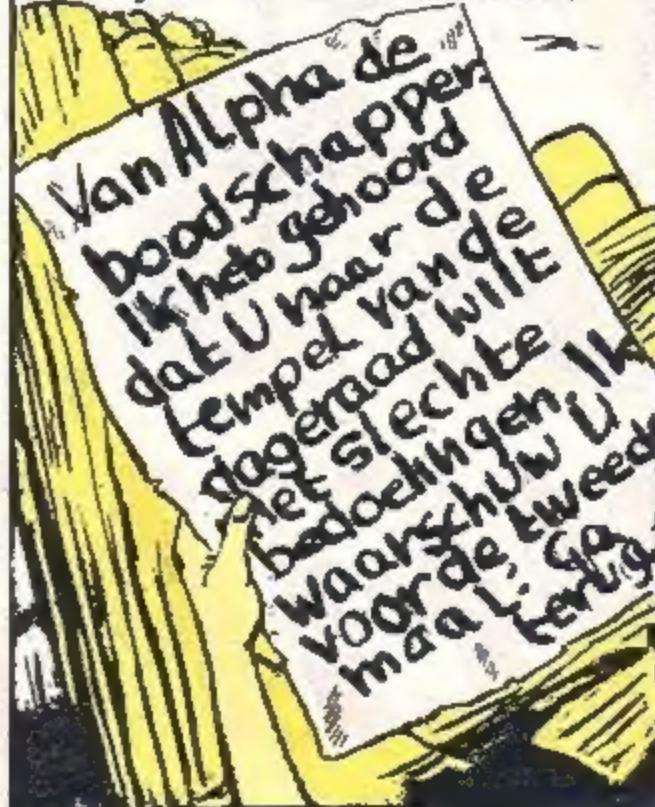 Van Alpha de
boodschapper.
Ik heb gehoord
dat U naar de
tempel van de
dageraad wilt
Met slechte
bedoelingen. Ik
waarschuw U
voor de tweede
maal. Ga
terug.